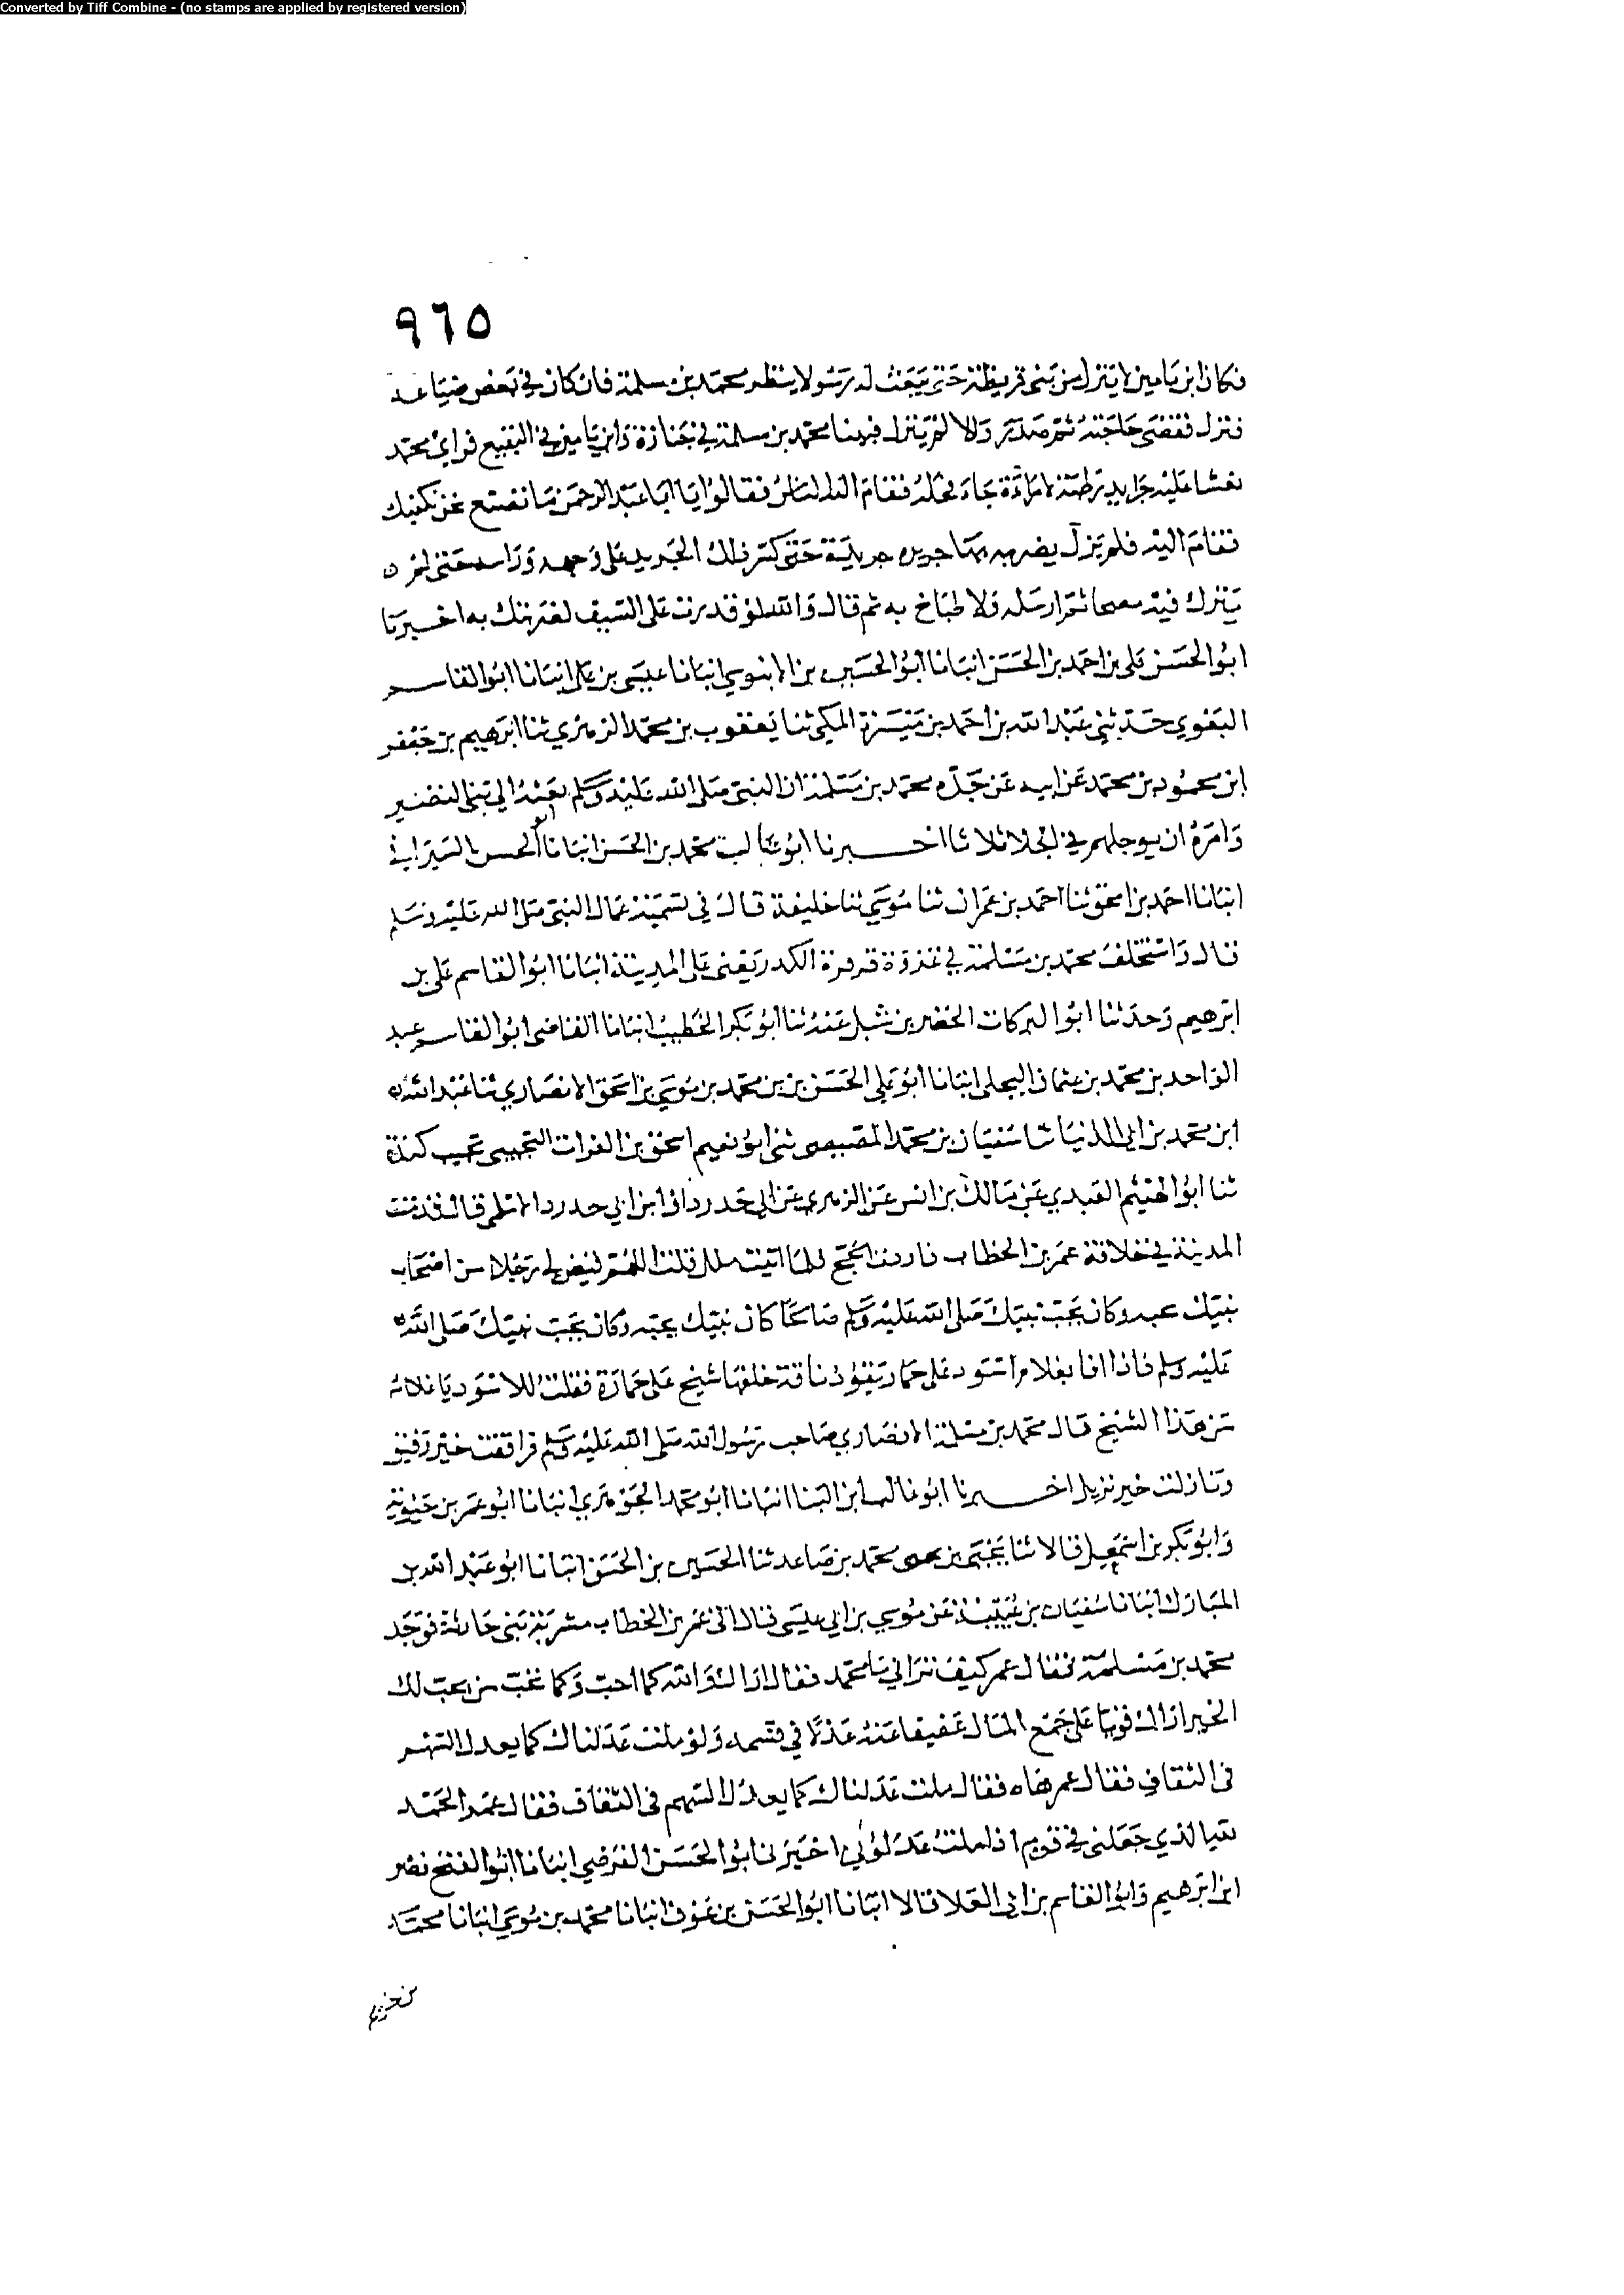 Converted by Tiff Combine - (no stamps are applied by registered version)
٩٦٥
فكان ابن يامين لا ينزل من بني قريظة حتى يبعث له رسولا ينظر محمد بن مسلمة فان كان في بعض ضياعه
نزل فقضى حاجته ثم صدر والا لم ينزل فبينا محمد بن مسلمة في جنازة وابن يامين في البقيع فراي محمد
نعشا عليه جرايد رطبة لامراة جاء فحله فقام اليه الناس فقالوا يا ابا عبد الرحمن ما تصنع نحن نكفيك
فقام اليه فلم يزل يضربه بها جريدة جريدة حتى كسر ذلك الجريد على وجهه وراسه حتى لم
يترك فيه مصحا ثم ارسله ولا طباخ به ثم قال والله لو قدرت على السيف لضربتك به اخبرنا
ابو الحسن علي بن احمد بن الحسن انبانا ابو الحسين بن الابنوسي انبانا عيسى بن علي انبانا ابو القاسم
البغوي حدثني عبد الله بن احمد بن ميسرة المكي ثنا يعقوب بن محمد الزهري ثنا ابرهيم بن جعفر
ابن محمود بن محمد عن ابيه عن جده محمد بن مسلمة ان النبي صلى الله عليه وسلم بعثه الي بني النضير
وامره ان يوجلهم في الجلا ثلاثا اخبرنا ابو غالب محمد بن الحسن انبانا ابو الحسن السيرافي
انبانا احمد بن اسحق ثنا احمد بن عمران ثنا موسي ثنا خليفة قال في تسمية عمال النبي صلى الله عليه وسلم
قال واستخلف محمد بن مسلمة في غزوة قرقرة الكدر يعني على المدينة انبانا ابو القاسم علي بن
ابرهيم وحدثنا ابو البركات الخضر بن شبل عنه ثنا ابو بكر الخطيب انبانا القاضي ابو القاسم عبد
الواحد بن محمد بن عثمان البجلي انبانا ابو علي الحسن بن بن محمد بن موسي بن اسحق الانصاري ثنا عبد الله
ابن محمد بن ابي الدنيا ثنا سفيان بن محمد المصيصي ثني ابو نعيم اسحق بن الفرات التجيبي تجيب كندة
ثنا ابو الهيثم العبدي عن مالك بن انس عن الزهري عن ابي حدرد او ابن ابي حدرد الاسلمي قال قدمت
المدينة في خلافة عمر بن الخطاب فاردت الحج فلما اتيت قلت اللهم قيض لي رجلا من اصحاب
نبيك عبد وكان يحب نبيك صلى الله عليه وسلم صالحا كان نبيك يحبه وكان يحب نبيك صلى الله
عليه وسلم فاذا انا بغلام اسود على حمار يقود ناقة خلفها شيخ على حمارة فقلت للاسود يا غلام
من هذا الشيخ قال محمد بن مسلمة الانصاري صاحب رسول الله صلى الله عليه وسلم فرافقت خير رفيق
ونازلت خير نزيل اخبرنا ابو غالب ابن البنا انبانا ابو محمد الجوهري انبانا ابو عمر بن حيوية
وابو بكر بن اسمعيل قالا ثنا يحيى بن محمد بن صاعد ثنا الحسين بن الحسن انبانا ابو عبد الله بن
المبارك انبانا سفيان بن عيينة عن موسي بن ابي عيسى قال اتى عمر بن الخطاب مشربة بني حارثة فوجد
محمد بن مسلمة فقال عمر كيف تراني يا محمد فقال اراك والله كما احب وكما يحب من يحب لك
الخير اراك قويا على جمع المال عفيفا عنه عدلا في قسمه ولو ملت عدلناك كما يعدل السهم
في الثقاف فقال عمر هاه فقال ملت عدلناك كما يعدل السهم في الثقاف فقال عمر الحمد
لله الذي جعلني في قوم اذا ملت عدلوني اخبرنا ابو الحسن الفرضي انبانا ابو الفتح نصر
ابن ابرهيم وابو القاسم بن ابي العلا قالا انبانا ابو الحسن بن عوف انبانا محمد بن موسي انبانا محمد
بن خزيم